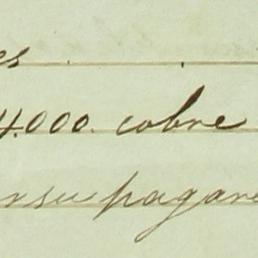 es
4.000. cobre
su pagare